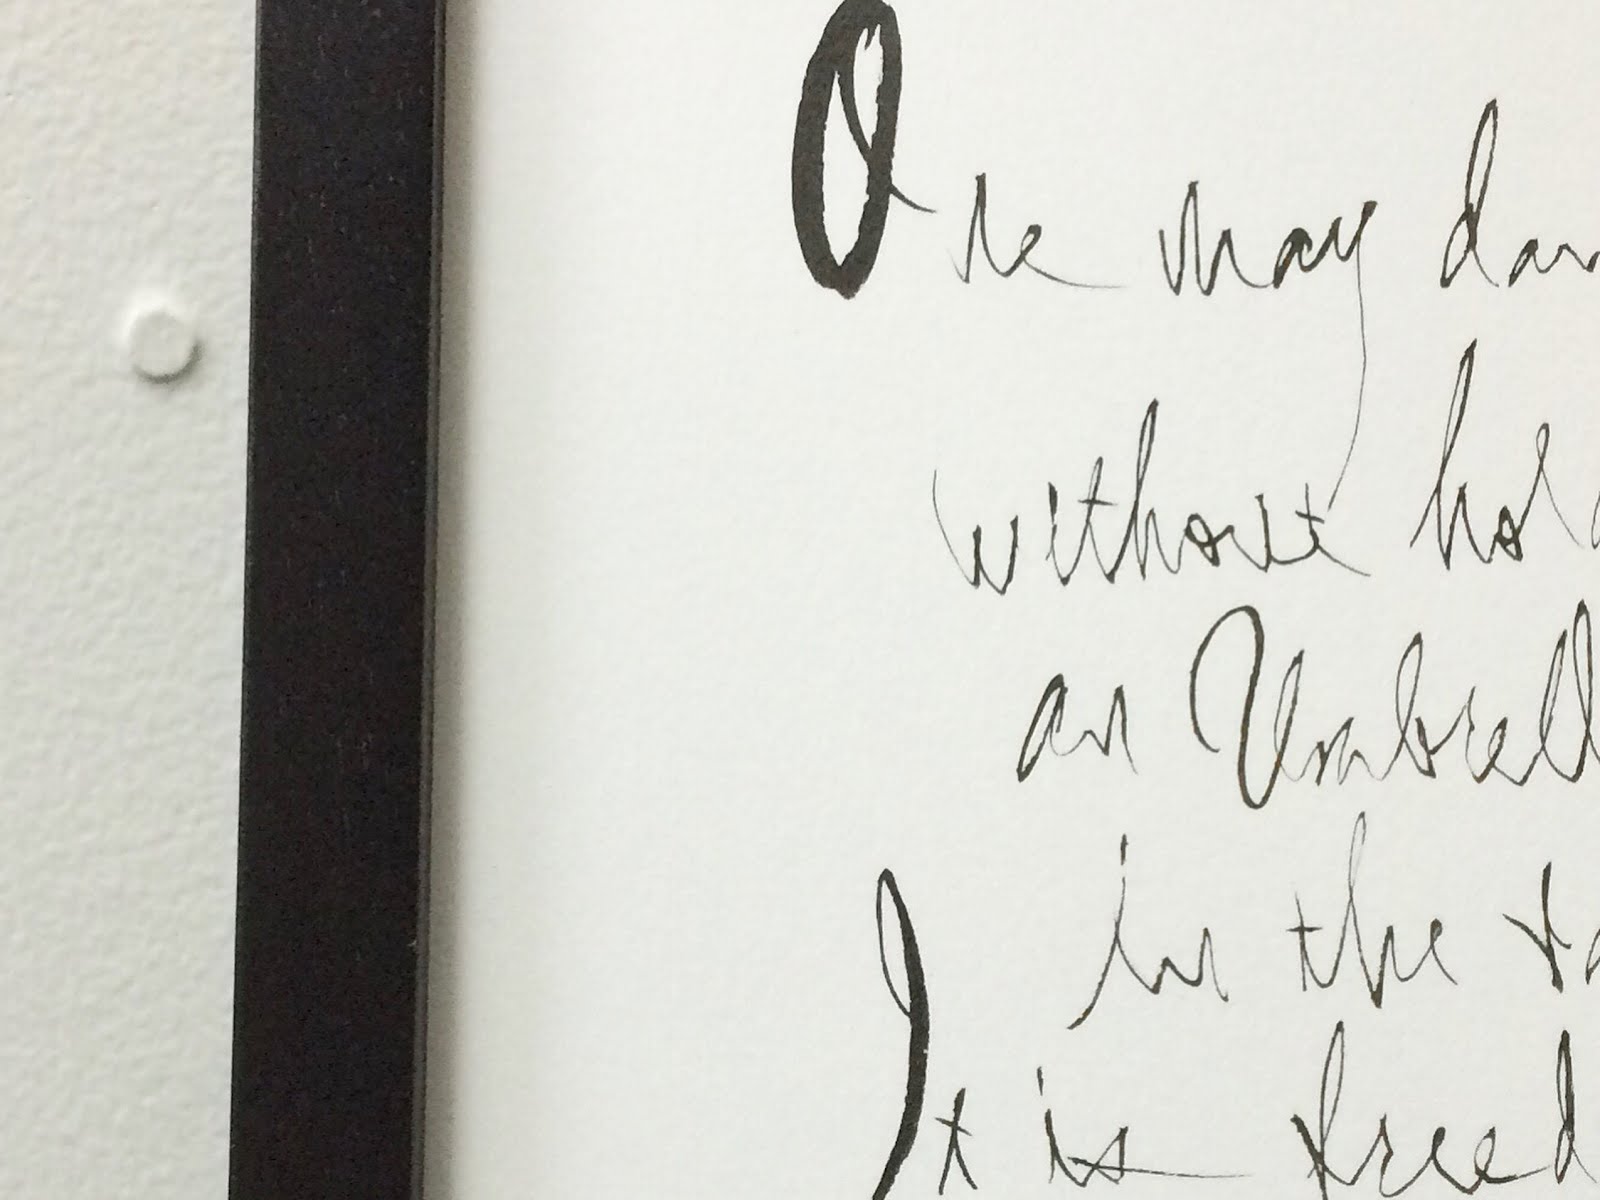 One may dan
without hol
an Umbrell
in the ra
It is freed